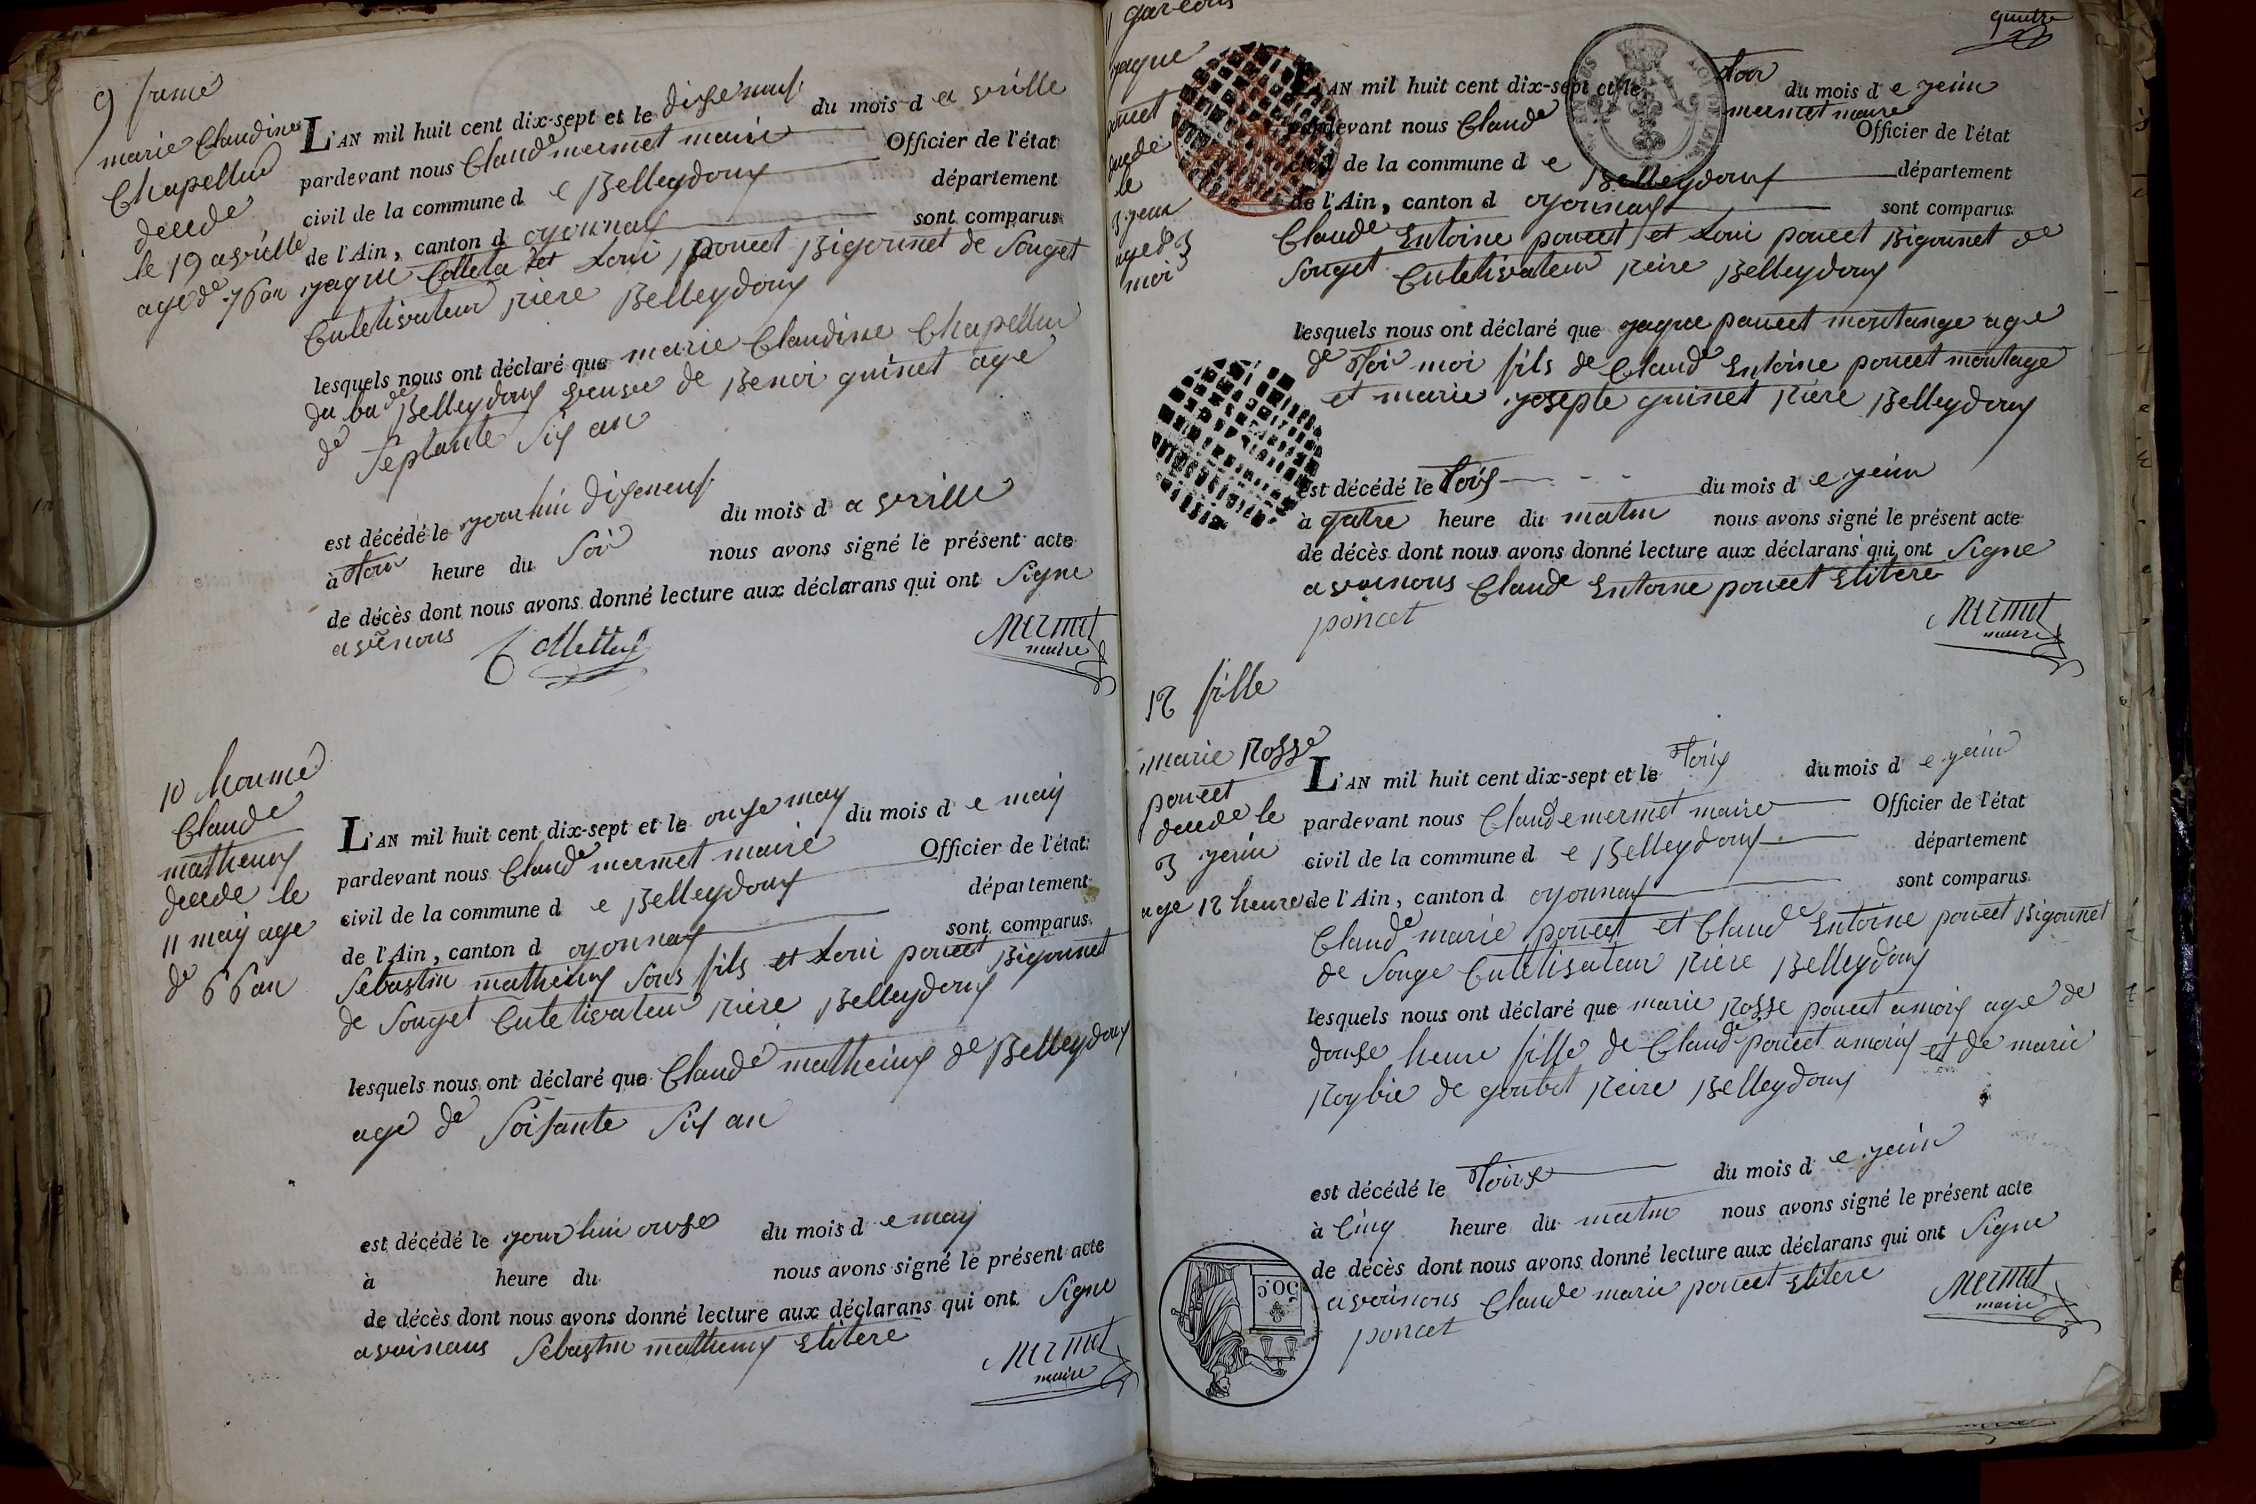 9 feme
marie Claudine
Chapellus
decede
le 19 avrille
age de 76 an
L'AN mil huit cent dix-sept et le diseneuf du mois d a vrille
pardevant nous Claude mermet maire Officier de l'état
civil de la commune d e Belleydoux département
de l'Ain, canton d oyonnax sont comparus
yaque Colleta et Loui poncet Bigounet de Souget
Cultivateur riere Belleydoux
lesquels nous ont déclaré que marie Claudine Chapellus
du ba de Belleydoux veuve de Benoi guinet age
de septante six an
est décédé le yourhui diseneuf du mois d a vrille
à Toi heure du Soi nous avons signé le présent acte
de décès dont nous avons donné lecture aux déclarans qui ont Signe
avenous Collettaz
MERMET
maire
10 houme
Claude
matheux
decede le
11 may age
de 66 an
L'AN mil huit cent dix-sept et le onse may du mois d e may
pardevant nous Claude mermet maire Officier de l'état
civil de la commune d e Belleydoux département
de l'Ain, canton d oyonnax sont comparus
Sebastin matheux Sons fils et Loui poncet Bigounet
de Souget Cultivateur riere Belleydoux
lesquels nous ont déclaré que Claude matheux de Belleydoux
age de Soisante Six an
est décédé le yourhui onse du mois d e may
à heure du nous avons signé le présent acte
de décès dont nous avons donné lecture aux déclarans qui ont Signe
avoinous Sebastin matheux elitere
MERMET
maire
11 garcons
yaque
poncet
decede
le
3 yeun
age de 3
moi
L'AN mil huit cent dix-sept et le toi du mois d e yeun
pardevant nous Claude mermet maire Officier de l'état
civil de la commune d e Belleydoux département
de l'Ain, canton d oyonnax sont comparus
Claude Entoine poncet et Loui poncet Bigounet de
Souget Cultivateur riere Belleydoux
lesquels nous ont déclaré que yaque poncet montange age
de Toi moi fils de Claude Entoine poncet montage
et marie yosepte guinet riere Belleydoux
est décédé le Tois du mois d e yeun
à quatre heure du matin nous avons signé le présent acte
de décès dont nous avons donné lecture aux déclarans qui ont Signe
avoinous Claude Entoine poncet elitere
poncet
MERMET
maire
12 fille
marie Rosse
poncet
decede le
3 yeun
age 12 heure
L'AN mil huit cent dix-sept et le Tois du mois d e yeun
pardevant nous Claude mermet maire Officier de l'état
civil de la commune d e Belleydoux département
de l'Ain, canton d oyonnax sont comparus
Claude marie poncet et Claude Entoine poncet Bigounet
de Souge Cultivateur riere Belleydoux
lesquels nous ont déclaré que marie Rosse poncet amoix age de
douse heure fille de Claude poncet amoix et de marie
Roybie de goubet riere Belleydoux
est décédé le Toix du mois d e yeun
à Cinq heure du matin nous avons signé le présent acte
de décès dont nous avons donné lecture aux déclarans qui ont Signe
avoinous Claude marie poncet elitere
poncet
MERMET
maire